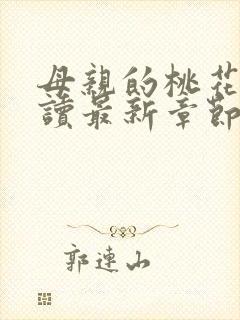 母親的桃花
讀最新章節
郭連山